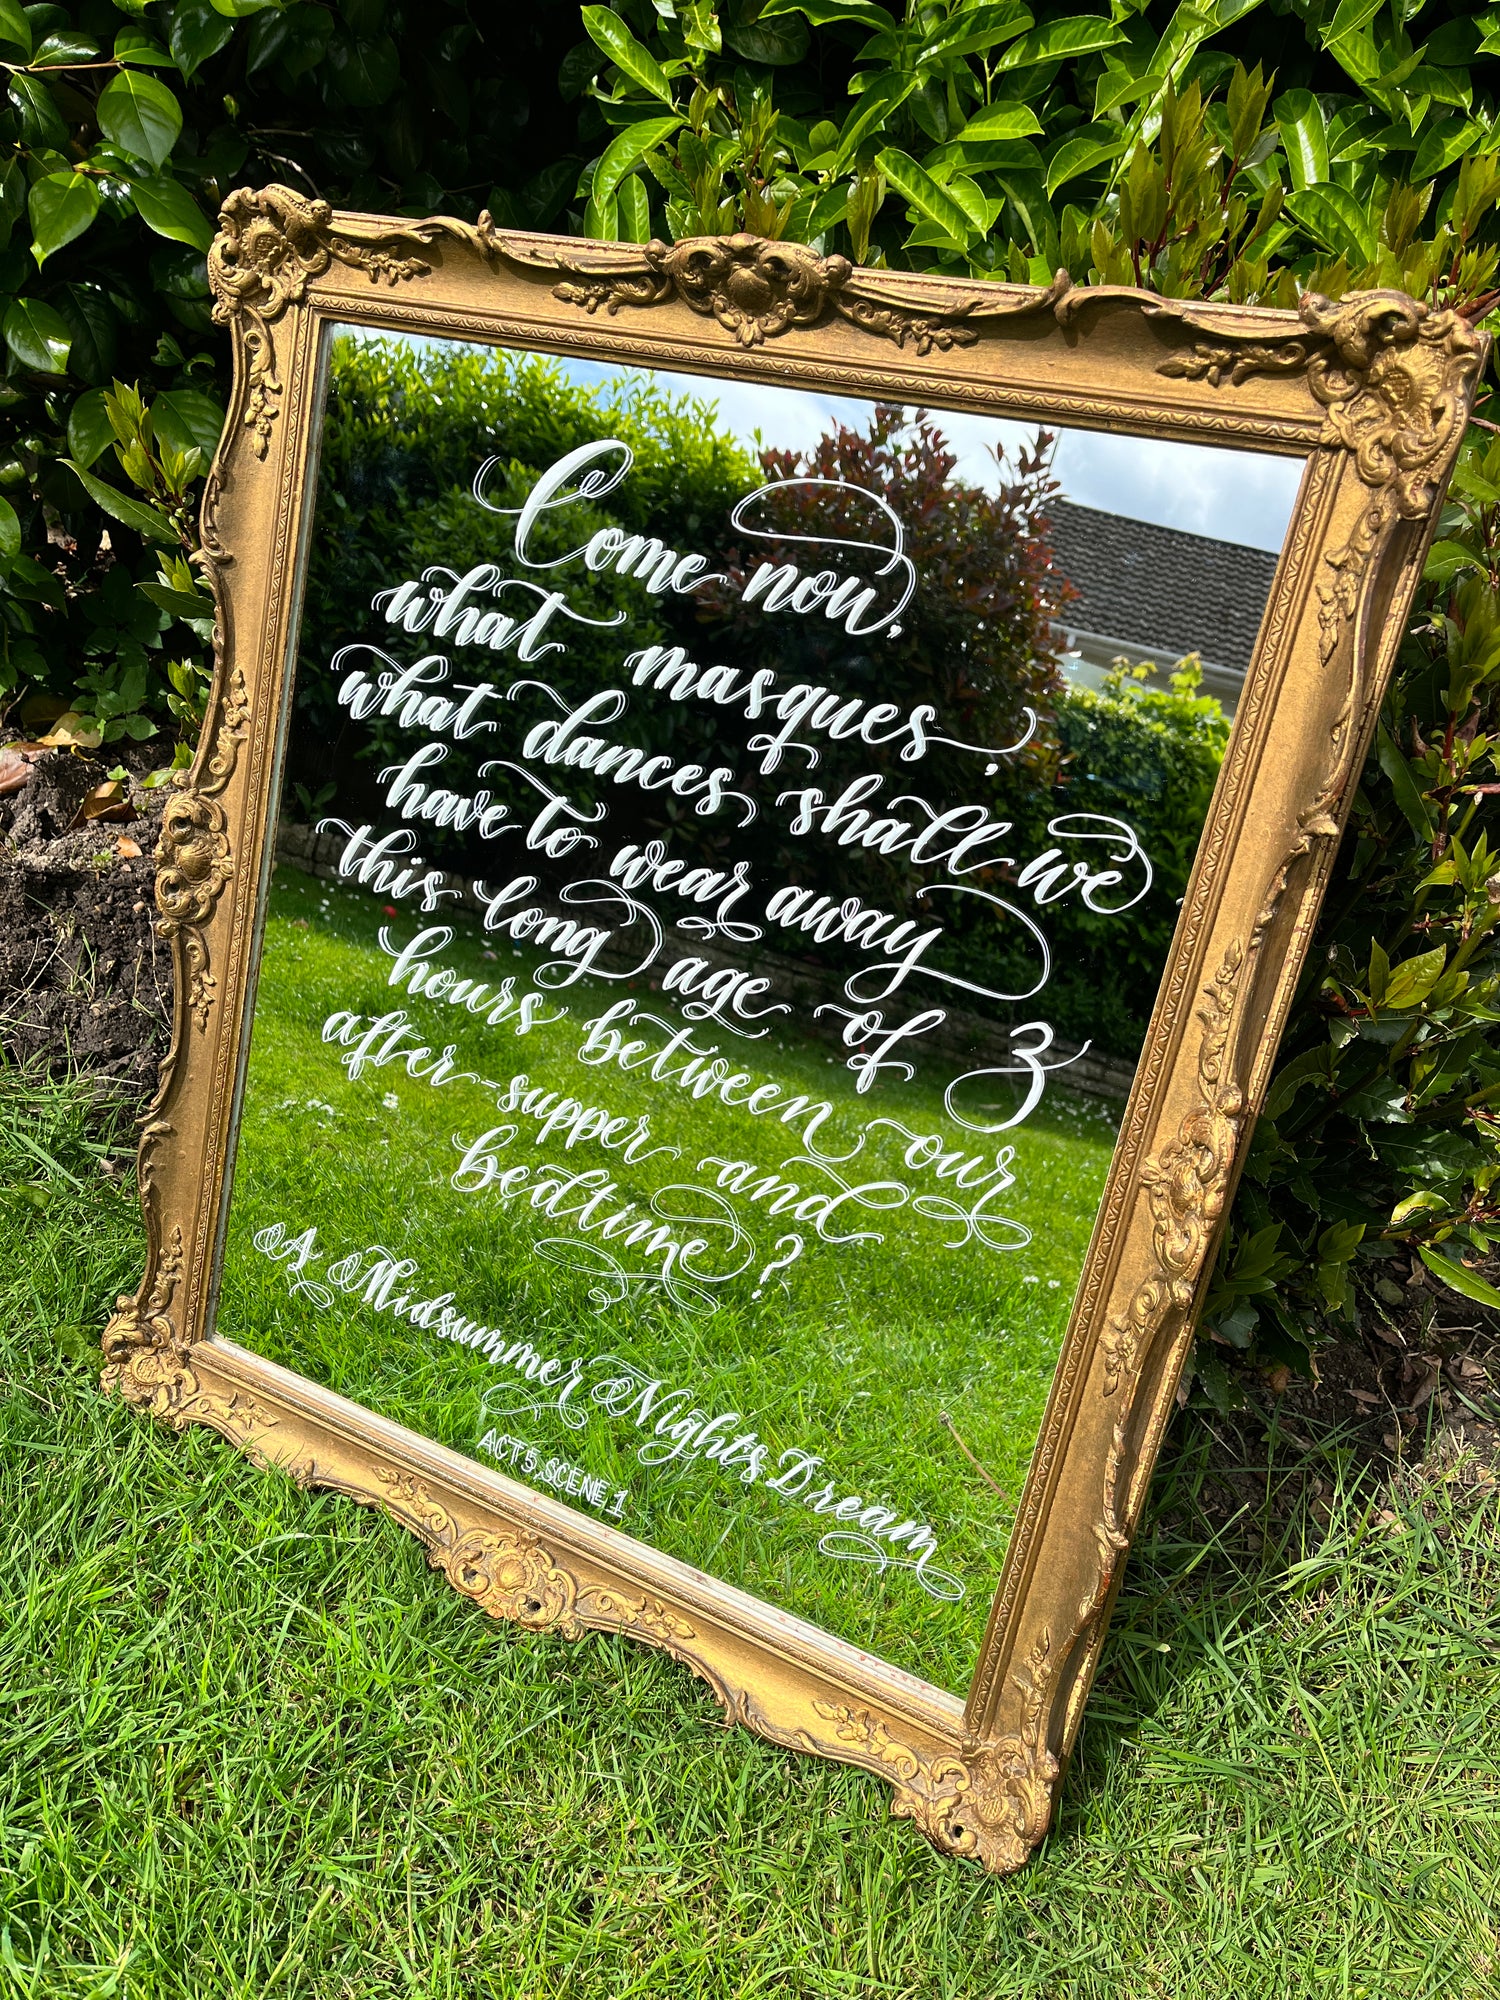 Come now,
what masques,
what dances, shall we
have to wear away
this long age of 3
hours between our
after-supper and
bedtime?
A Midsummer Night's Dream
ACT 5, SCENE 1